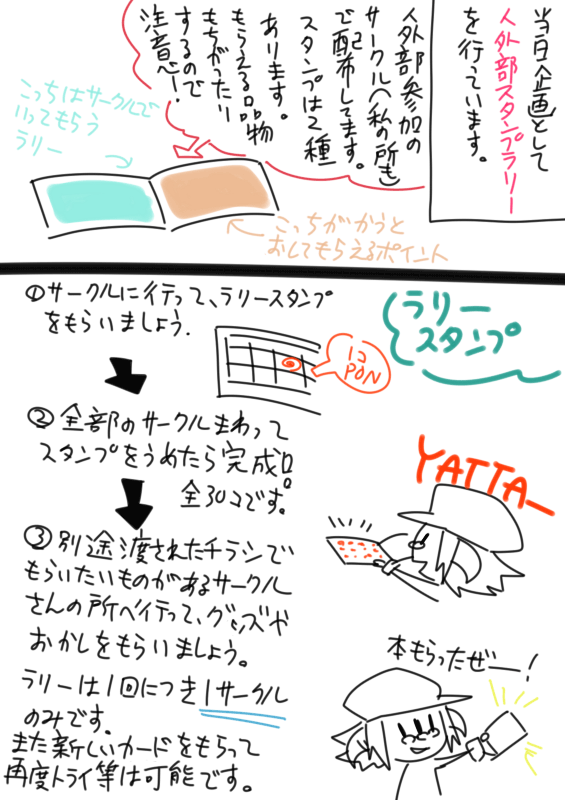 当日企画として
人外部スタンプラリー
を行っています。
人外部参加の
サークルへ(私の所も)
で配布してます。
スタンプは2種
あります。
もらえる品物
もちがったり
するので
注意ー!
こっちはサークルで
いってもらう
ラリー
こっちがかうと
おしてもらえるポイント
ラリー
スタンプ
①サークルに行って、ラリースタンプ
をもらいましょう.
1コ
PON
②全部のサークルまわって
スタンプをうめたら完成!
全30コです。
YATTAー
③別途渡されたチラシで
もらいたいものがあるサークル
さんの所へ行って、グッズや
おかしをもらいましょう。
ラリーは1回につき1サークル
のみです。
また新しいカードをもらって
再度トライ等は可能です。
本もらったぜー!